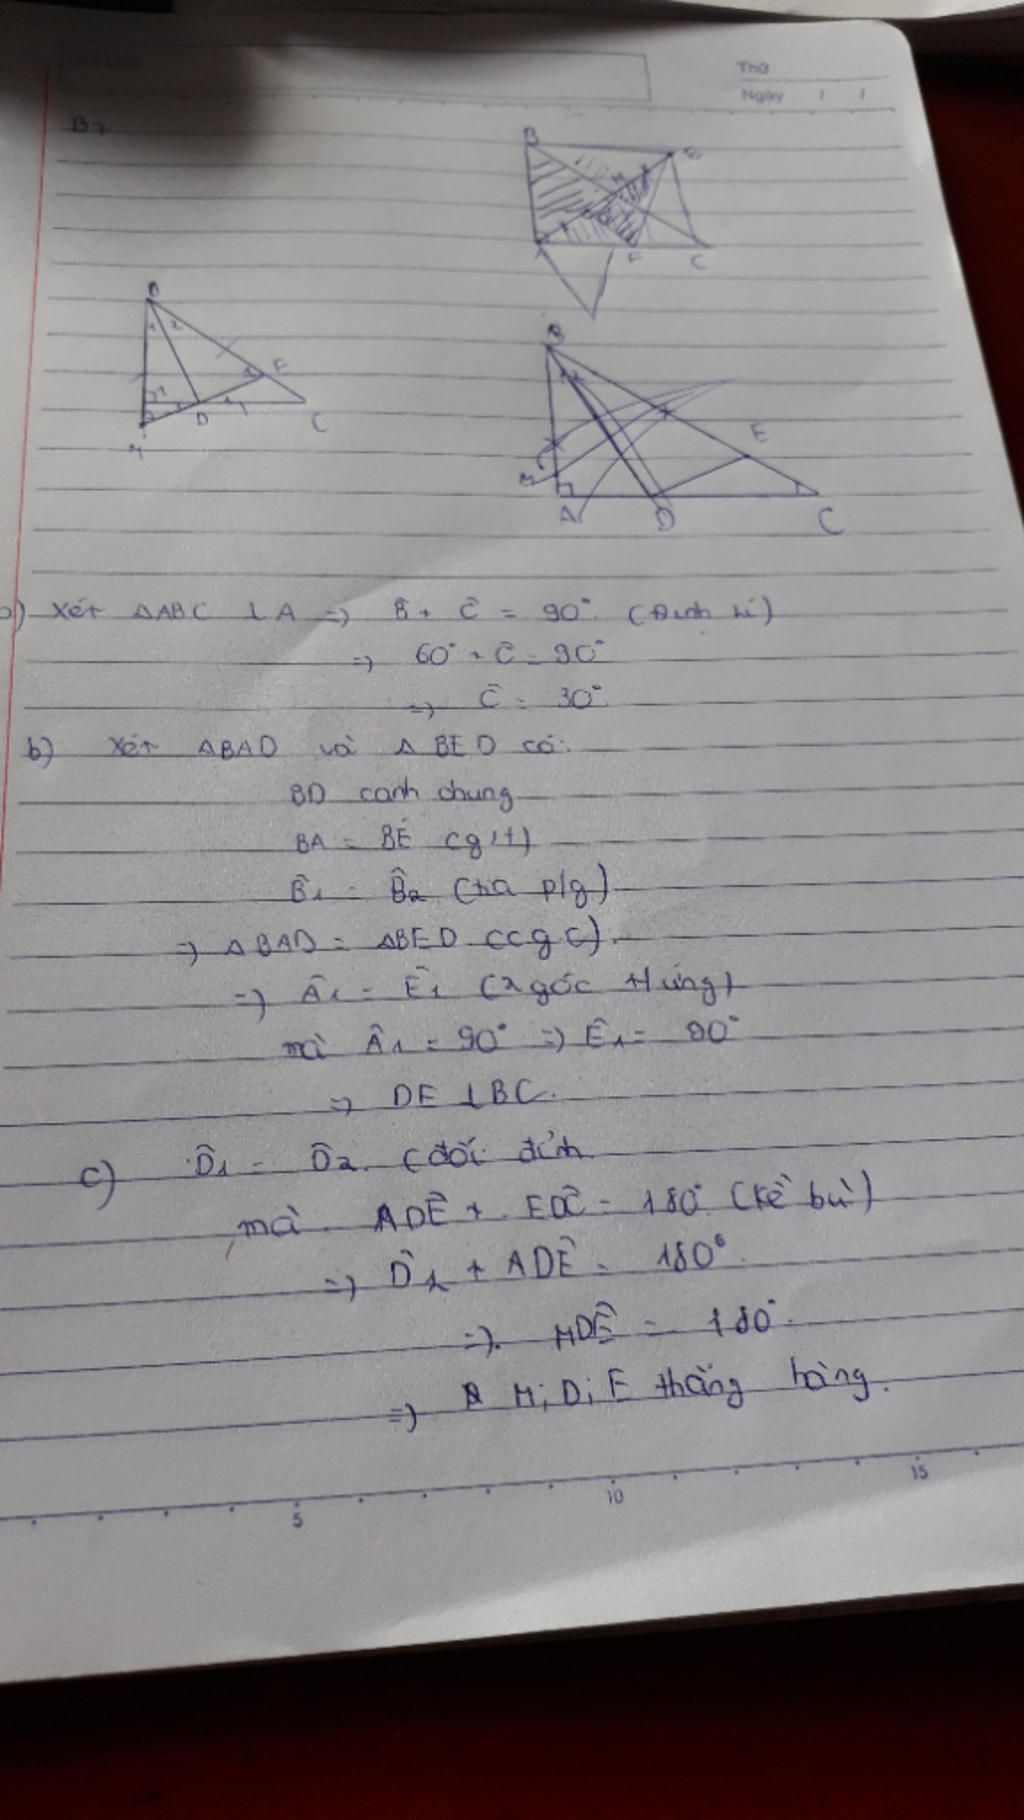 Thứ
Ngày / /
B7
B E
M
A F C
B
1 2
E
D
C
M
B
E
M
A D C
a) Xét ΔABC ⊥ A => B̂ + Ĉ = 90° (Định lí)
=> 60° + Ĉ = 90°
=> Ĉ = 30°
b) Xét ΔBAD và ΔBED có:
BD cạnh chung
BA = BE (g/t)
B̂1 = B̂2 (tia p/g)
=> ΔBAD = ΔBED (cgc).
=> Â1 = Ê1 (2 góc t/ứng)
mà Â1 = 90° => Ê1 = 90°
=> DE ⊥ BC.
c) D̂1 = D̂2 (đối đỉnh
mà ADÊ + EDĈ = 180° (kề bù)
=> D̂2 + ADÊ = 180°
=> MDÊ = 180°
=> M; D; E thẳng hàng.
5 10 15